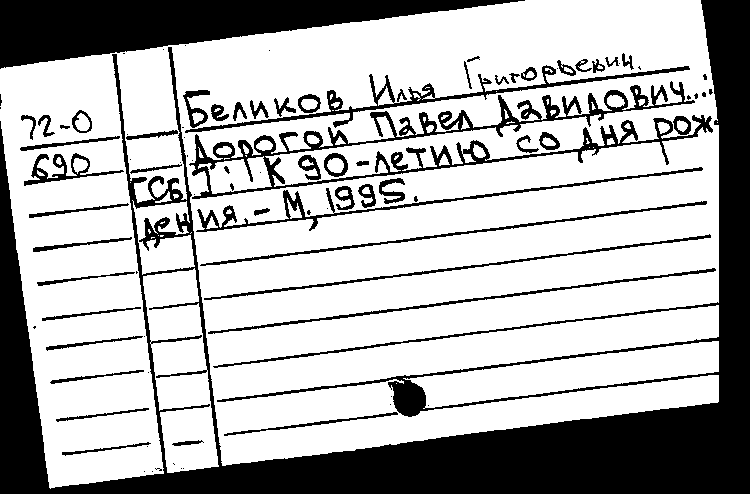 Беликов, Илья Григорьевич.
72-0 Дорогой Павел Давидович...:
690 [Сб.]: К 90-летию со дня рож-
дения. - М., 1995.